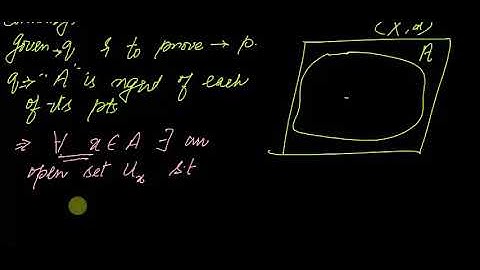 (X, d)
given → q, & to prove → p.
A
q ⇒ "A" is ngbd of each
of its pts
⇒ ∀ x ∈ A ∃ an
open set Uₓ s.t